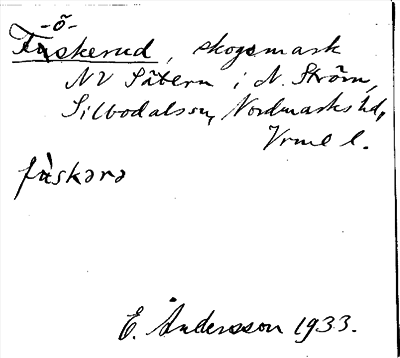 -ö-
Fåskerud, skogsmark
NV Sätern i N. Ström,
Silbodalssn, Nordmarks hd,
Vrml l.
fàskərə
E. Andersson 1933.